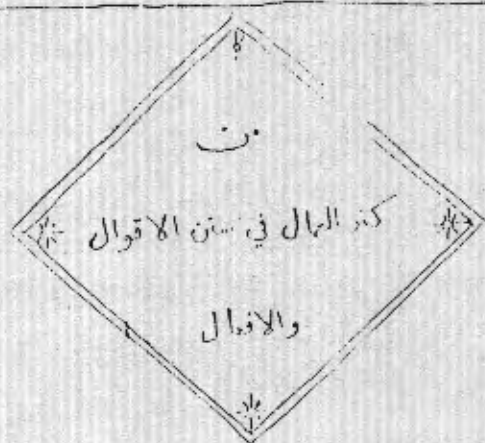 كنز العمال في سنن الاقوال
والافعال